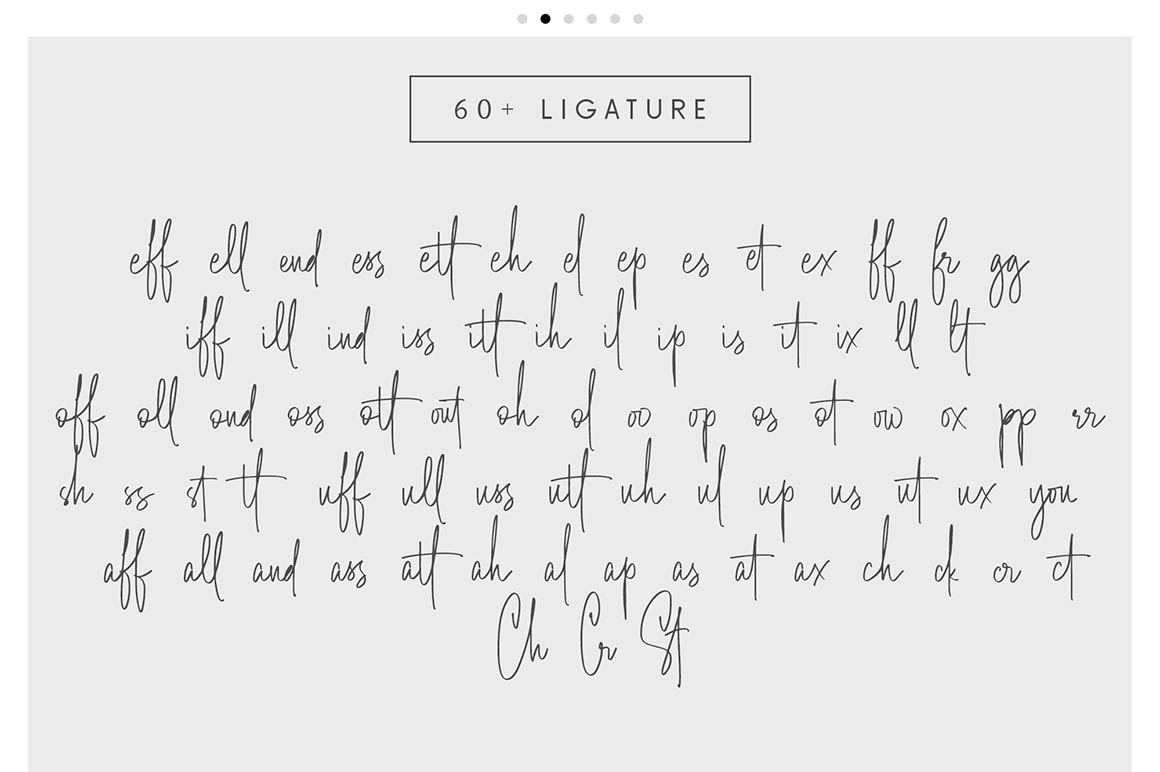 60+ LIGATURE
eff ell end ess ett eh el ep es et ex ff fr gg
iff ill ind iss itt ih il ip is it ix ll lt
off oll ond oss ott out oh ol oo op os ot ow ox pp rr
sh ss st tt uff ull uss utt uh ul up us ut ux you
aff all and ass att ah al ap as at ax ch ck cr ct
Ch Cr St